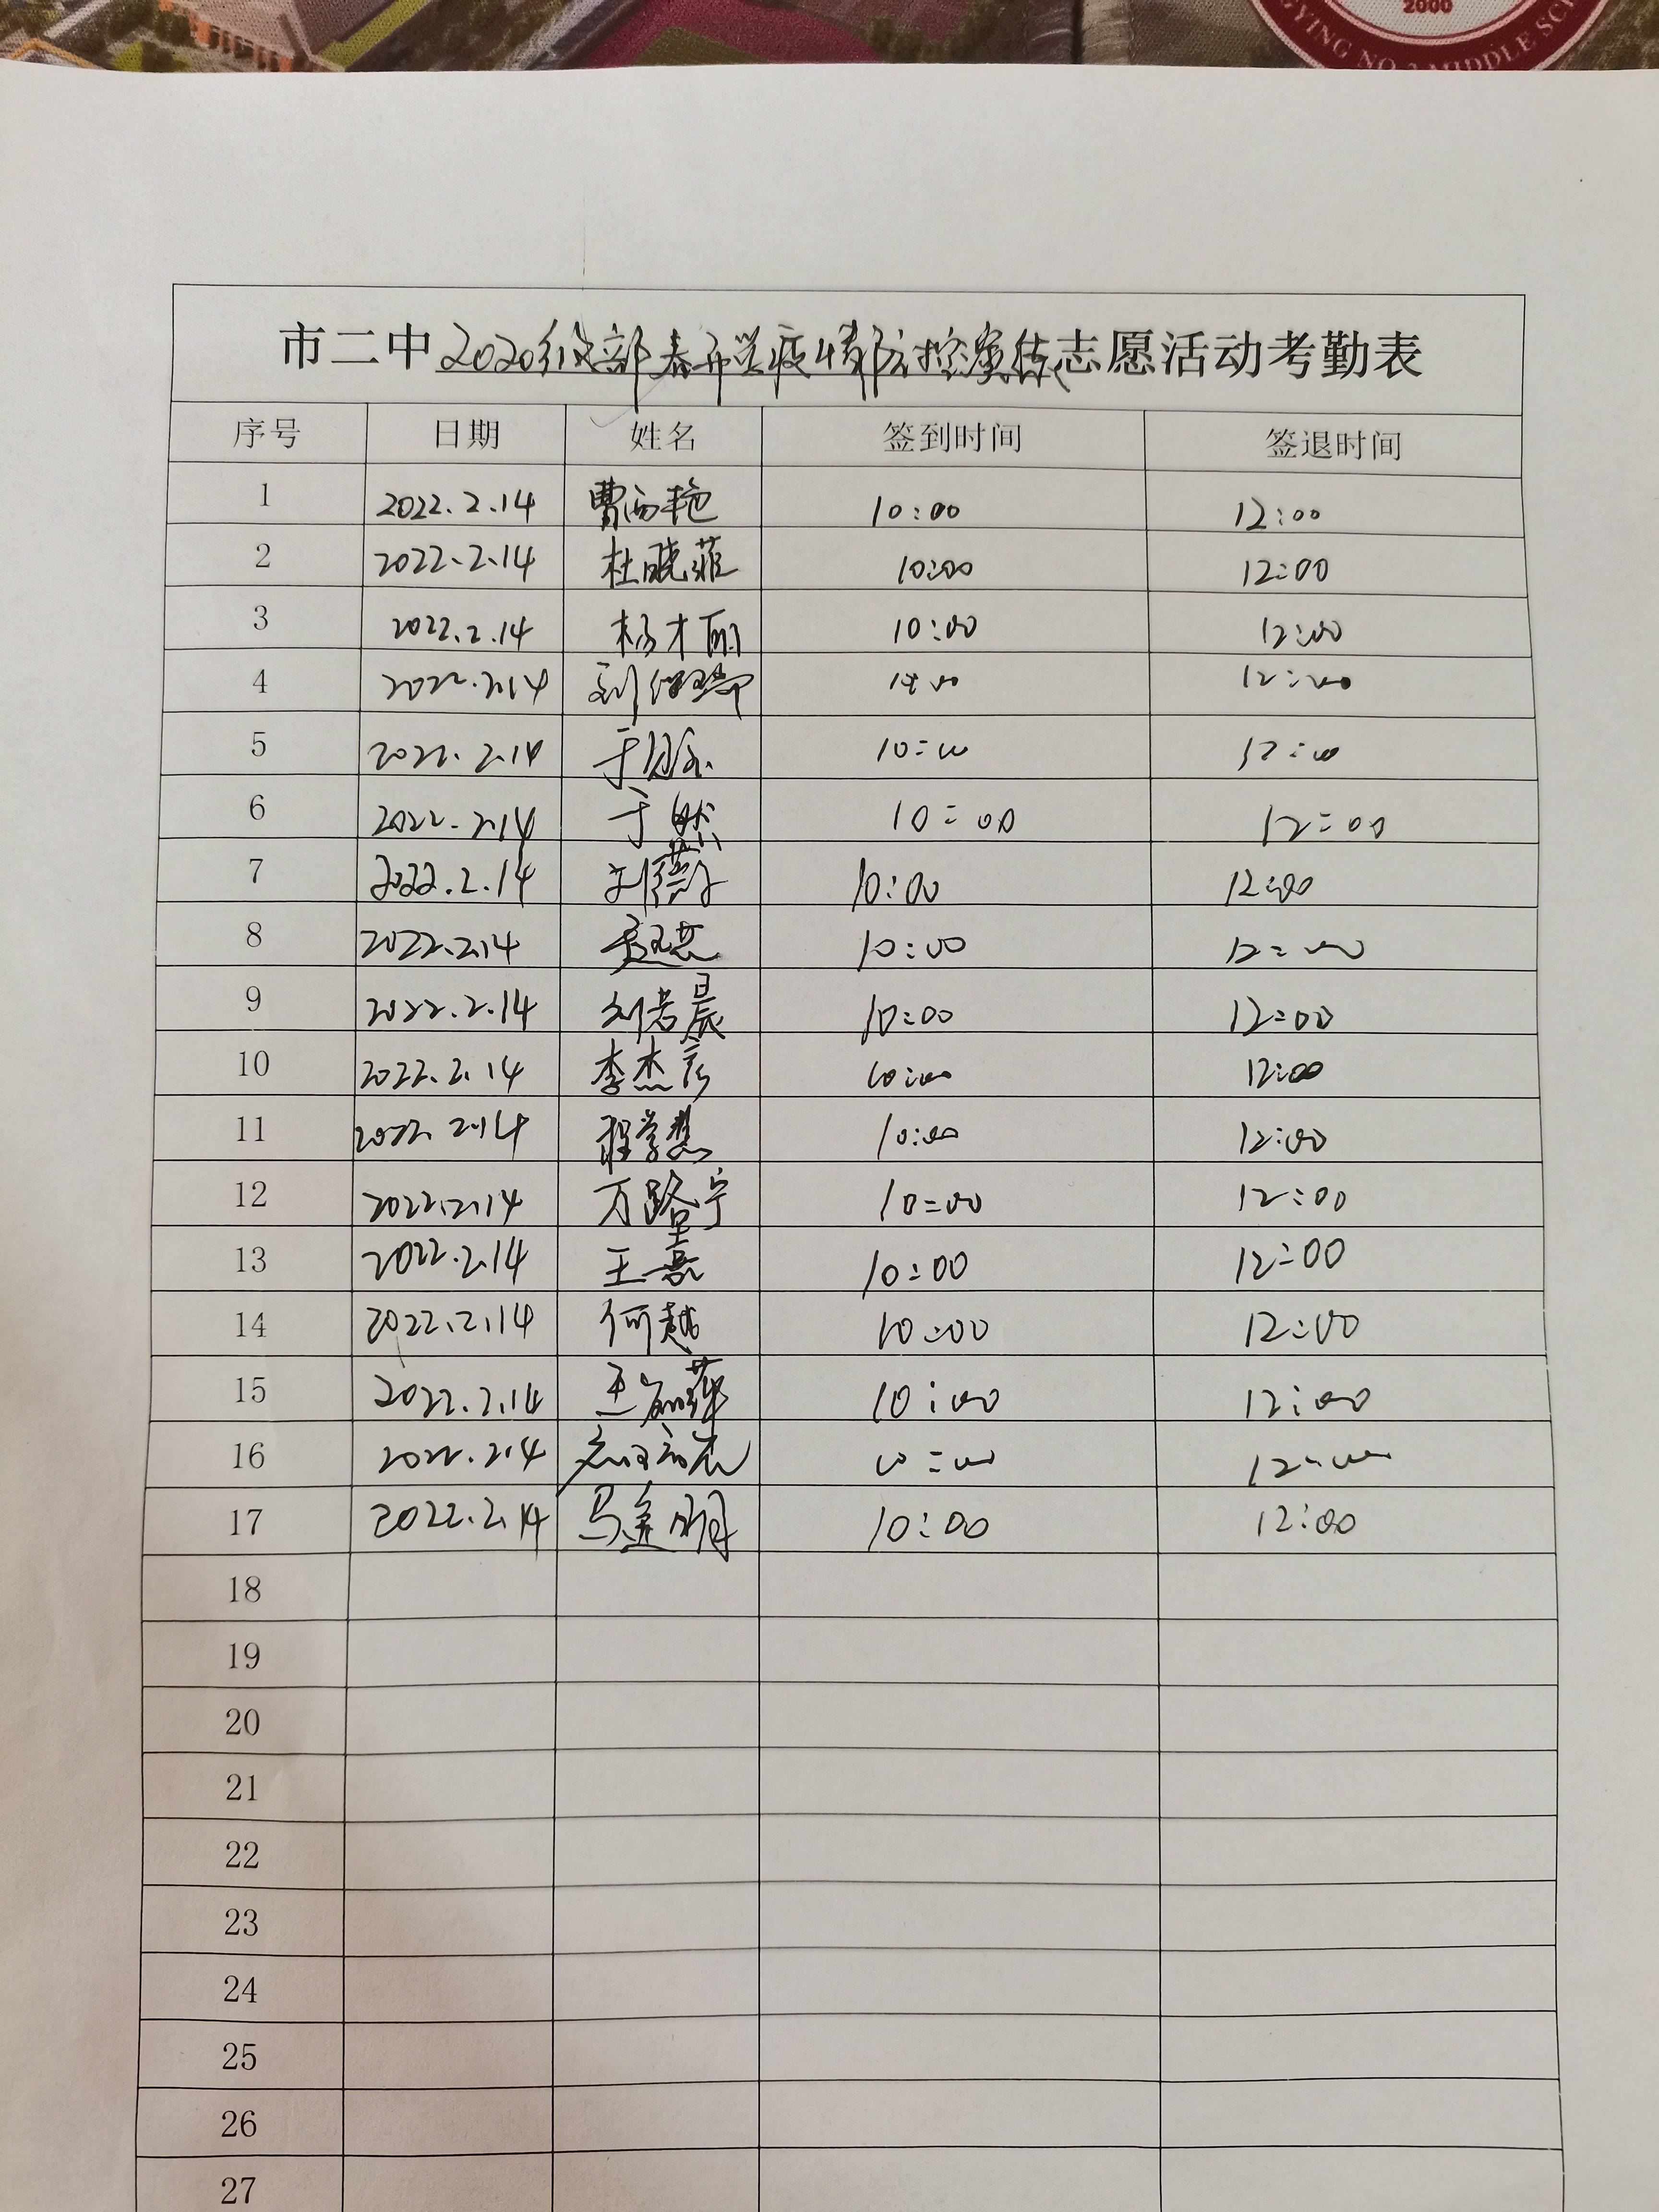 2000
YING NO.2 MIDDLE SC
市二中2020级部春开学疫情防控演练志愿活动考勤表
序号 日期 姓名 签到时间 签退时间
1 2022.2.14 曹西艳 10:00 12:00
2 2022.2.14 杜晓菲 10:00 12:00
3 2022.2.14 杨才丽 10:00 12:00
4 2022.2.14 刘 10:00 12:00
5 2022.2.14 于 10:00 12:00
6 2022.2.14 于然 10:00 12:00
7 2022.2.14 刘蕾 10:00 12:00
8 2022.2.14 10:00 12:00
9 2022.2.14 刘若晨 10:00 12:00
10 2022.2.14 李杰彦 10:00 12:00
11 2022.2.14 程学慧 10:00 12:00
12 2022.2.14 万路宁 10:00 12:00
13 2022.2.14 王 10:00 12:00
14 2022.2.14 何越 10:00 12:00
15 2022.2.14 王 10:00 12:00
16 2022.2.14 10:00 12:00
17 2022.2.14 马金明 10:00 12:00
18
19
20
21
22
23
24
25
26
27